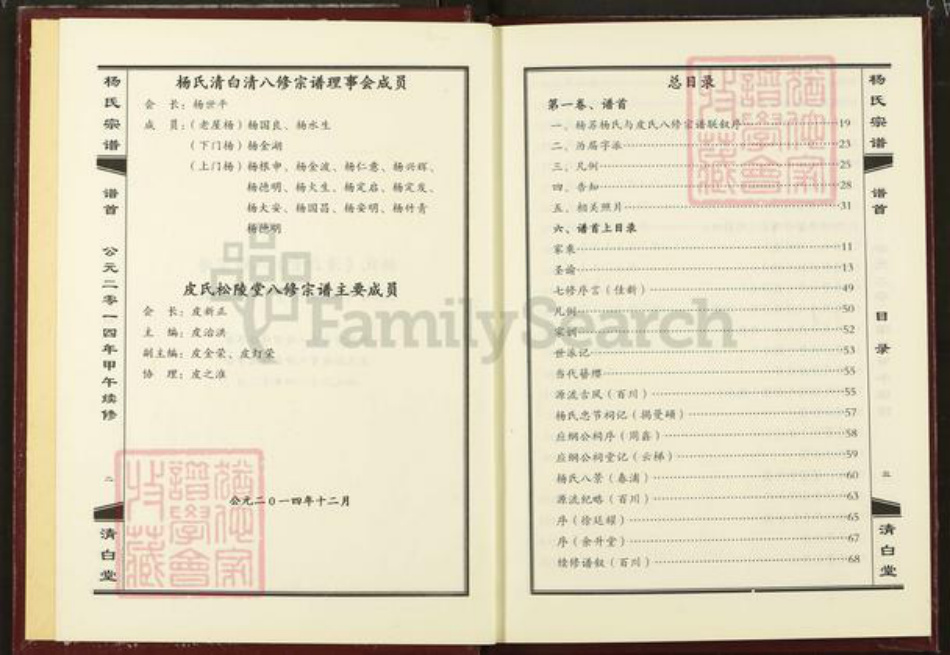 杨氏宗谱
谱首
公元二零一四年甲午续修
二
清白堂
杨氏清白清八修宗谱理事会成员
会 长：杨世平
成 员：（老屋杨）杨国良、杨水生
（下门杨）杨金湖
（上门杨）杨根申、杨金波、杨仁意、杨兴辉、
杨德明、杨火生、杨定启、杨定发、
杨大安、杨国昌、杨安明、杨竹青
杨德明
皮氏松陵堂八修宗谱主要成员
会 长：皮新正
主 编：皮治洪
副主编：皮金荣、皮灯荣
协 理：皮之淮
公元二0一四年十二月
FamilySearch
总目录
第一卷、谱首
一、杨芴杨氏与皮氏八修宗谱联叙序 19
二、历届字派 23
三、凡例 25
四、告知 28
五、相关照片 31
六、谱首上目录
家乘 11
圣谕 13
七修序言（佳新） 49
凡例 50
家训 52
世派记 53
当代簪缨 55
源流古风（百川） 55
杨氏忠节祠记（揭曼硕） 57
应纲公祠序（周鑫） 58
应纲公祠堂记（云梯） 59
杨氏八景（春浦） 60
源流纪略（百川） 63
序（徐廷耀） 65
序（余升堂） 67
续修谱叙（百川） 68
杨氏宗谱
谱首
目录
三
清白堂